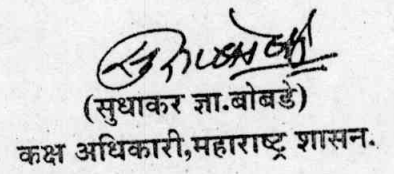 (सुधाकर ज्ञा.बोबडे)
कक्ष अधिकारी,महाराष्ट्र शासन.